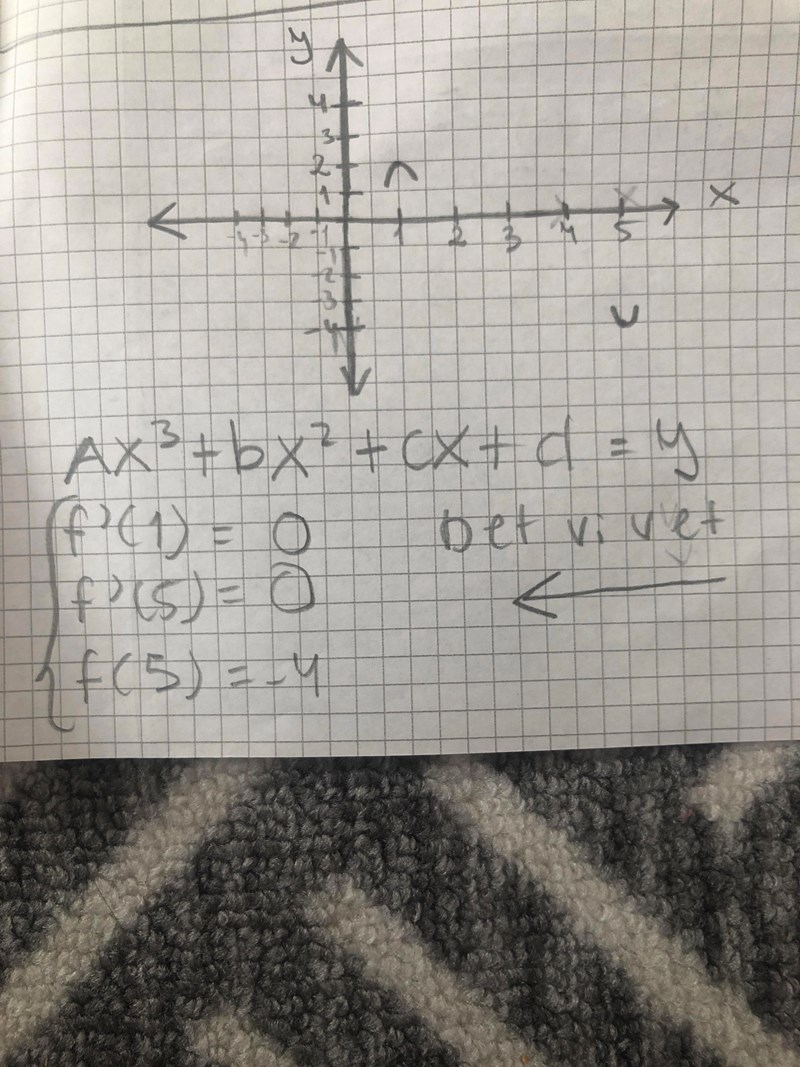 y
4
3
2
1
x
-4 -3 -2 -1 1 2 3 4 5
-1
-2
-3
-4
Ax³+bx²+cx+d=y
f'(1)=0 Det vi vet
f'(5)=0
f(5)=-4